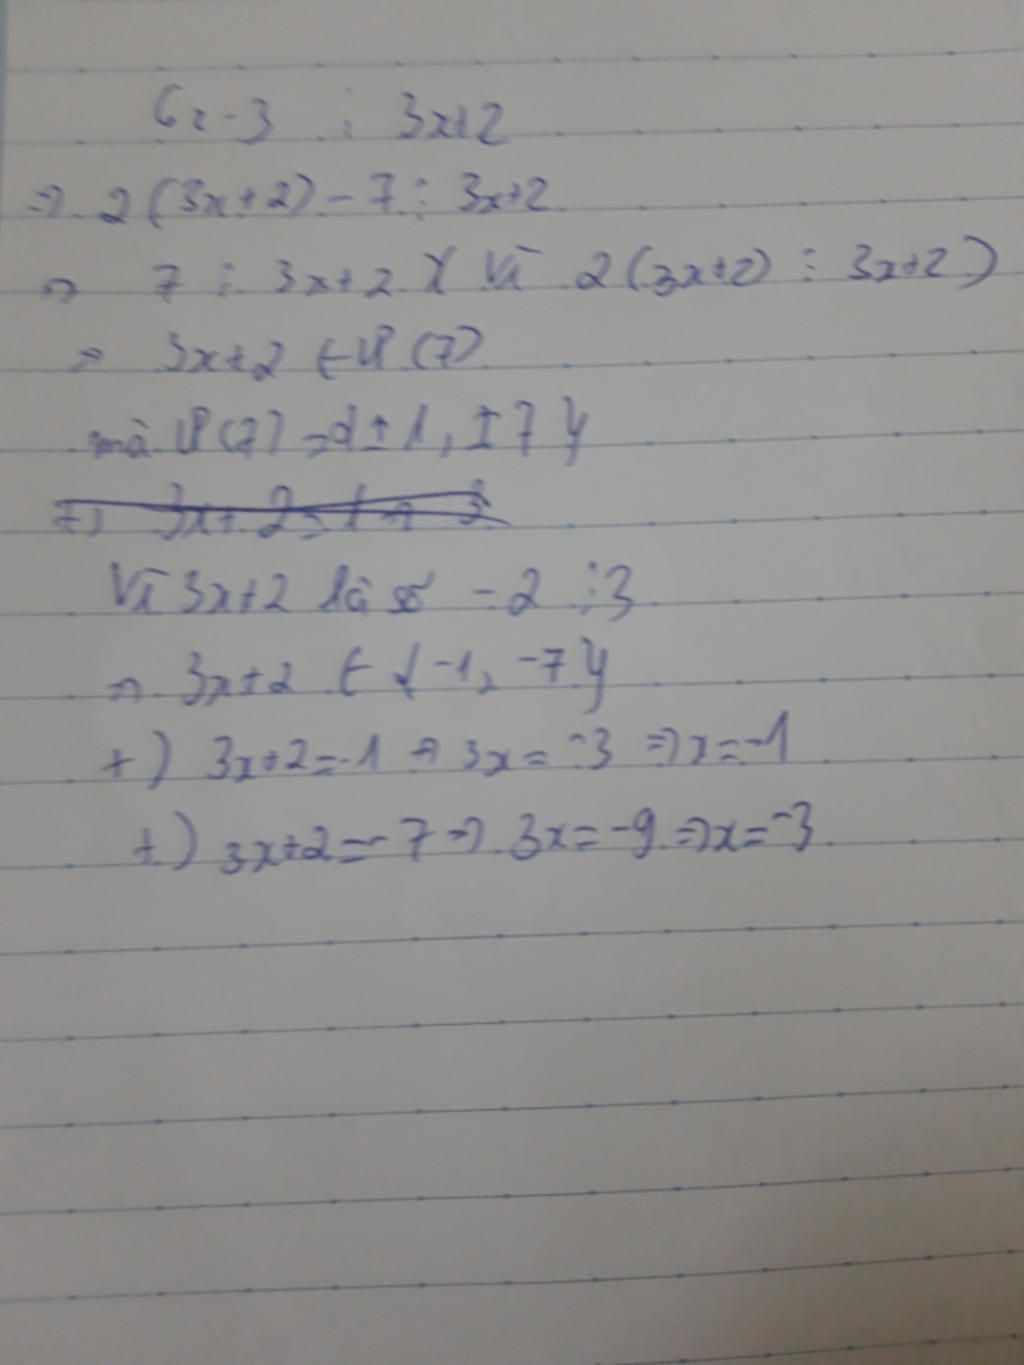 6x-3 ⋮ 3x+2
=> 2(3x+2)-7 ⋮ 3x+2
=> 7 ⋮ 3x+2 ( Vì 2(3x+2) ⋮ 3x+2)
=> 3x+2 ∈ Ư(7)
mà Ư(7) = {±1, ±7}
Vì 3x+2 là số -2 ⋮ 3
=> 3x+2 ∈ {-1, -7}
+) 3x+2=-1 => 3x=-3 => x=-1
+) 3x+2=-7 => 3x=-9 => x=-3